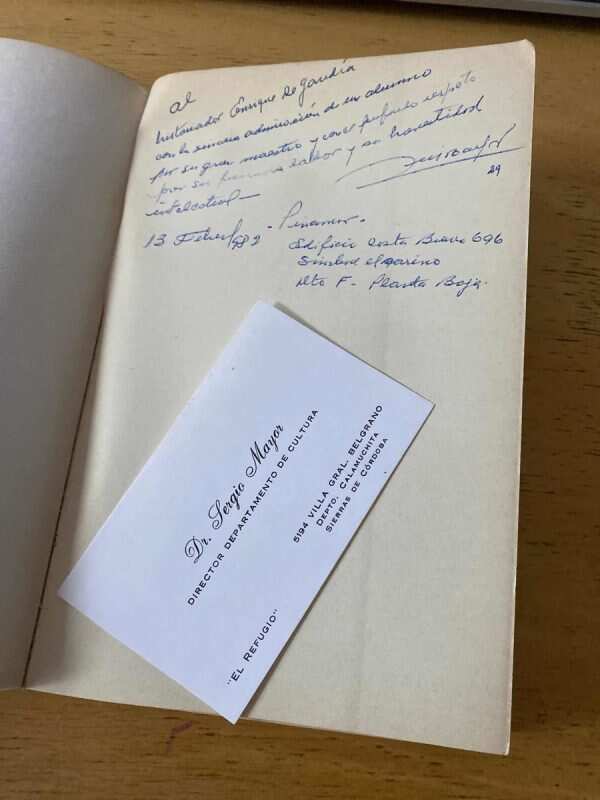 al
historiador Enrique de Gandía
con la sincera admiración de un alumno
por su gran maestro y con el profundo respeto
por su labor y su honestidad
intelectual—
13 Febrero 982 - Pinamar -
Edificio Costa Brava 696
Simbad el Marino
Dto F- Planta Baja.
Dr. Sergio Mayor
DIRECTOR DEPARTAMENTO DE CULTURA
5194 VILLA GRAL. BELGRANO
DEPTO. CALAMUCHITA
SIERRAS DE CÓRDOBA
"EL REFUGIO"